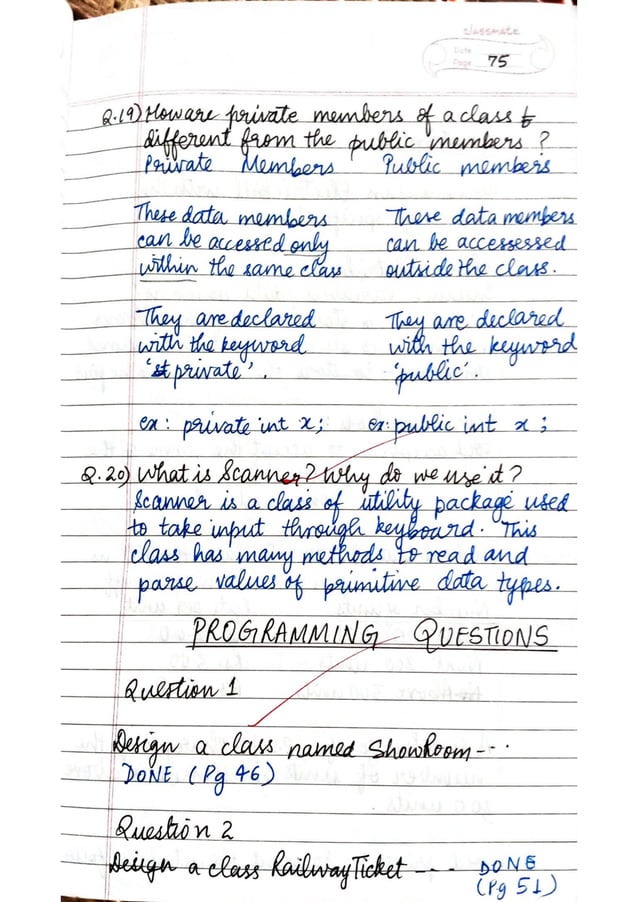 classmate
Date
Page 75
Q.19) How are private members of a class
different from the public members ?
Private Members Public members
These data members These data members
can be accessed only can be accessessed
within the same class outside the class.
They are declared They are declared
with the keyword with the keyword
'private'. 'public'.
ex: private int x; ex: public int x;
Q.20) What is Scanner? Why do we use it?
Scanner is a class of utility package used
to take input through keyboard. This
class has many methods to read and
parse values of primitive data types.
PROGRAMMING QUESTIONS
Question 1
Design a class named ShowRoom---
DONE (Pg 46)
Question 2
Design a class RailwayTicket --- DONE
(Pg 51)